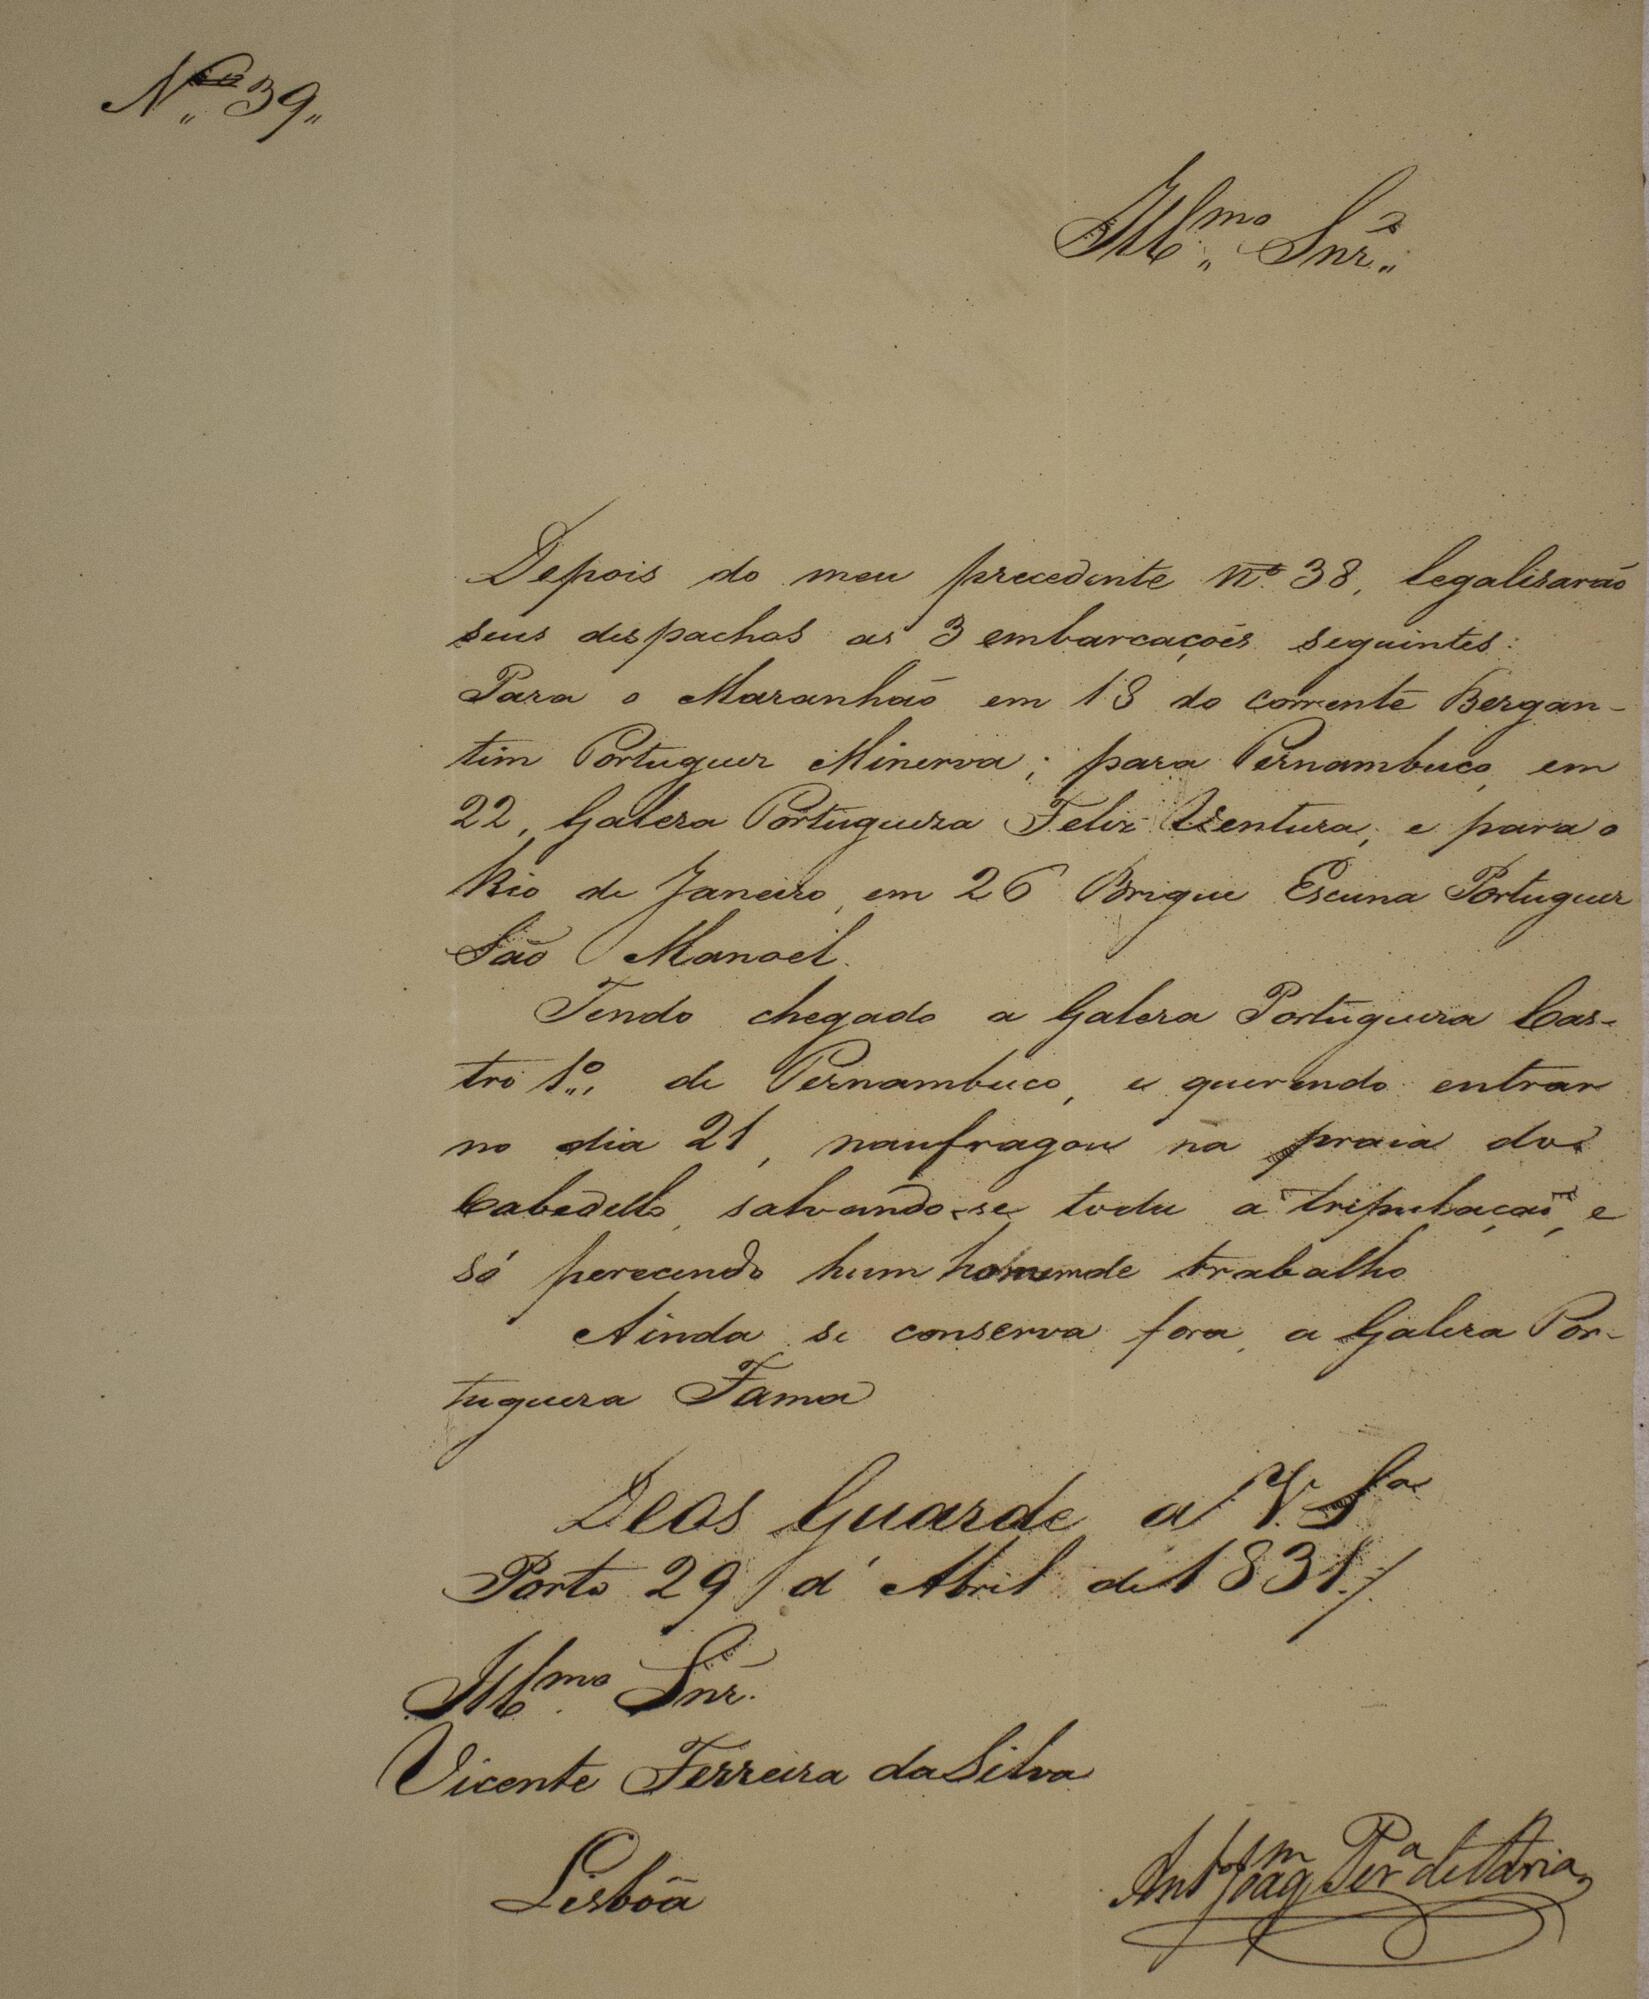 Nº 39
Illmo Snr.
Depois do meu precedente nº 38, legalisarão
seus despachos as 3 embarcações seguintes:
Para o Maranhão em 18 do corrente Bergan-
tim Portuguez Minerva; para Pernambuco, em
22, Galera Portugueza Feliz Ventura; e para o
Rio de Janeiro, em 26 Brigue Escuna Portuguez
São Manoel.
Tendo chegado a Galera Portugueza Cas-
tro 1º, de Pernambuco, e querendo entrar
no dia 21, naufragou na praia do
Cabedello, salvando-se toda a tripulação, e
só perecendo hum homem de trabalho
Ainda se conserva fora, a Galera Por-
tugueza Fama
Deos Guarde a V. Sa
Porto 29 d' Abril de 1831./
Illmo Snr.
Vicente Ferreira da Silva
Lisbôa
Anto Joaqm Pera de Faria